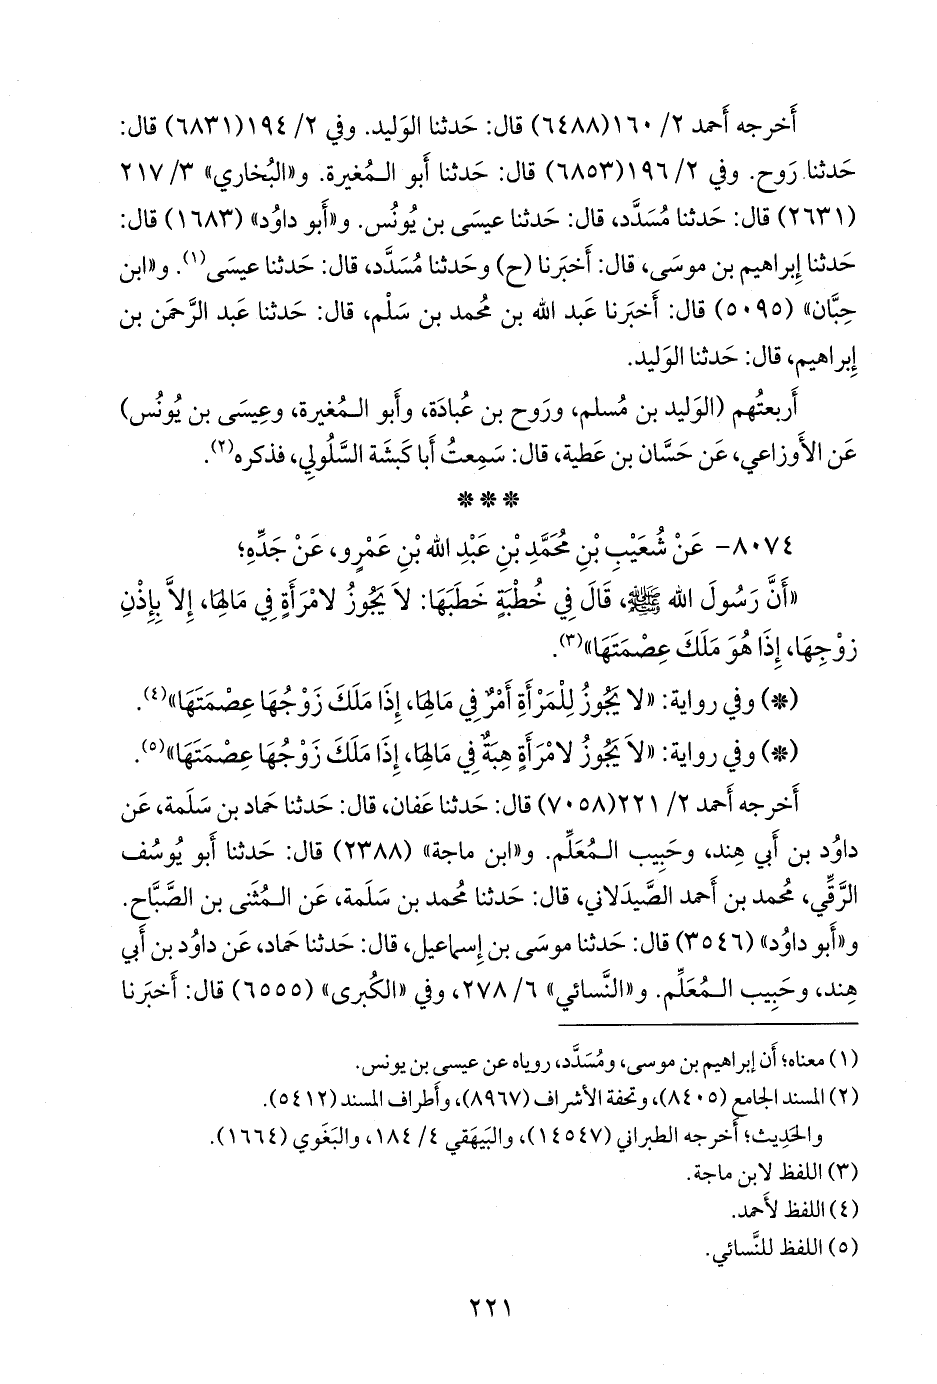 أَخرجه أَحمد ٢/ ١٦٠(٦٤٨٨) قال: حَدثنا الوَليد. وفي ٢/ ١٩٤(٦٨٣١) قال:
حَدثنا رَوح. وفي ٢/ ١٩٦(٦٨٥٣) قال: حَدثنا أَبو الـمُغيرة. و«البُخاري» ٣/ ٢١٧
(٢٦٣١) قال: حَدثنا مُسَدَّد، قال: حَدثنا عيسَى بن يُونُس. و«أَبو داوُد» (١٦٨٣) قال:
حَدثنا إِبراهيم بن موسَى، قال: أَخبَرنا (ح) وحَدثنا مُسَدَّد، قال: حَدثنا عيسَى(١). و«ابن
حِبَّان» (٥٠٩٥) قال: أَخبَرنا عَبد الله بن مُحمد بن سَلْم، قال: حَدثنا عَبد الرَّحمَن بن
إِبراهيم، قال: حَدثنا الوَليد.
أَربعتُهم (الوَليد بن مُسلم، ورَوح بن عُبادَة، وأَبو الـمُغيرة، وعِيسَى بن يُونُس)
عَن الأَوزاعي، عَن حَسَّان بن عَطية، قال: سَمِعتُ أَبا كَبشَة السَّلُولي، فذكره(٢).
* * *
٨٠٧٤- عَنْ شُعَيْبِ بْنِ مُحَمَّدِ بْنِ عَبْدِ الله بْنِ عَمْرٍو، عَنْ جَدِّهِ؛
«أَنَّ رَسُولَ الله ﷺ، قَالَ فِي خُطْبَةٍ خَطَبَهَا: لاَ يَجُوزُ لامْرَأَةٍ فِي مَالِهَا، إِلاَّ بِإِذْنِ
زَوْجِهَا، إِذَا هُوَ مَلَكَ عِصْمَتَهَا»(٣).
(*) وفي رواية: «لا يَجُوزُ لِلْمَرْأَةِ أَمْرٌ فِي مَالِهَا، إِذَا مَلَكَ زَوْجُهَا عِصْمَتَهَا»(٤).
(*) وفي رواية: «لاَ يَجُوزُ لامْرَأَةٍ هِبَةٌ فِي مَالِهَا، إِذَا مَلَكَ زَوْجُهَا عِصْمَتَهَا»(٥).
أَخرجه أَحمد ٢/ ٢٢١(٧٠٥٨) قال: حَدثنا عَفان، قال: حَدثنا حَماد بن سَلَمة، عَن
داوُد بن أَبي هِند، وحَبِيب الـمُعَلِّم. و«ابن ماجة» (٢٣٨٨) قال: حَدثنا أَبو يُوسُف
الرَّقِّي، مُحمد بن أَحمد الصَّيدَلاني، قال: حَدثنا مُحمد بن سَلَمة، عَن الـمُثَنى بن الصَّبَّاح.
و«أَبو داوُد» (٣٥٤٦) قال: حَدثنا موسَى بن إِسماعيل، قال: حَدثنا حَماد، عَن داوُد بن أَبي
هِند، وحَبِيب الـمُعَلِّم. و«النَّسائي» ٦/ ٢٧٨، وفي «الكُبرى» (٦٥٥٥) قال: أَخبَرنا
(١) معناه؛ أَن إبراهيم بن موسى، ومُسَدَّد، روياه عن عيسى بن يونس.
(٢) المسند الجامع (٨٤٠٥)، وتحفة الأشراف (٨٩٦٧)، وأطراف المسند (٥٤١٢).
والحَدِيث؛ أَخرجه الطبراني (١٤٥٤٧)، والبَيهَقي ٤/ ١٨٤، والبَغَوي (١٦٦٤).
(٣) اللفظ لابن ماجة.
(٤) اللفظ لأَحمد.
(٥) اللفظ للنَّسائي.
٢٢١